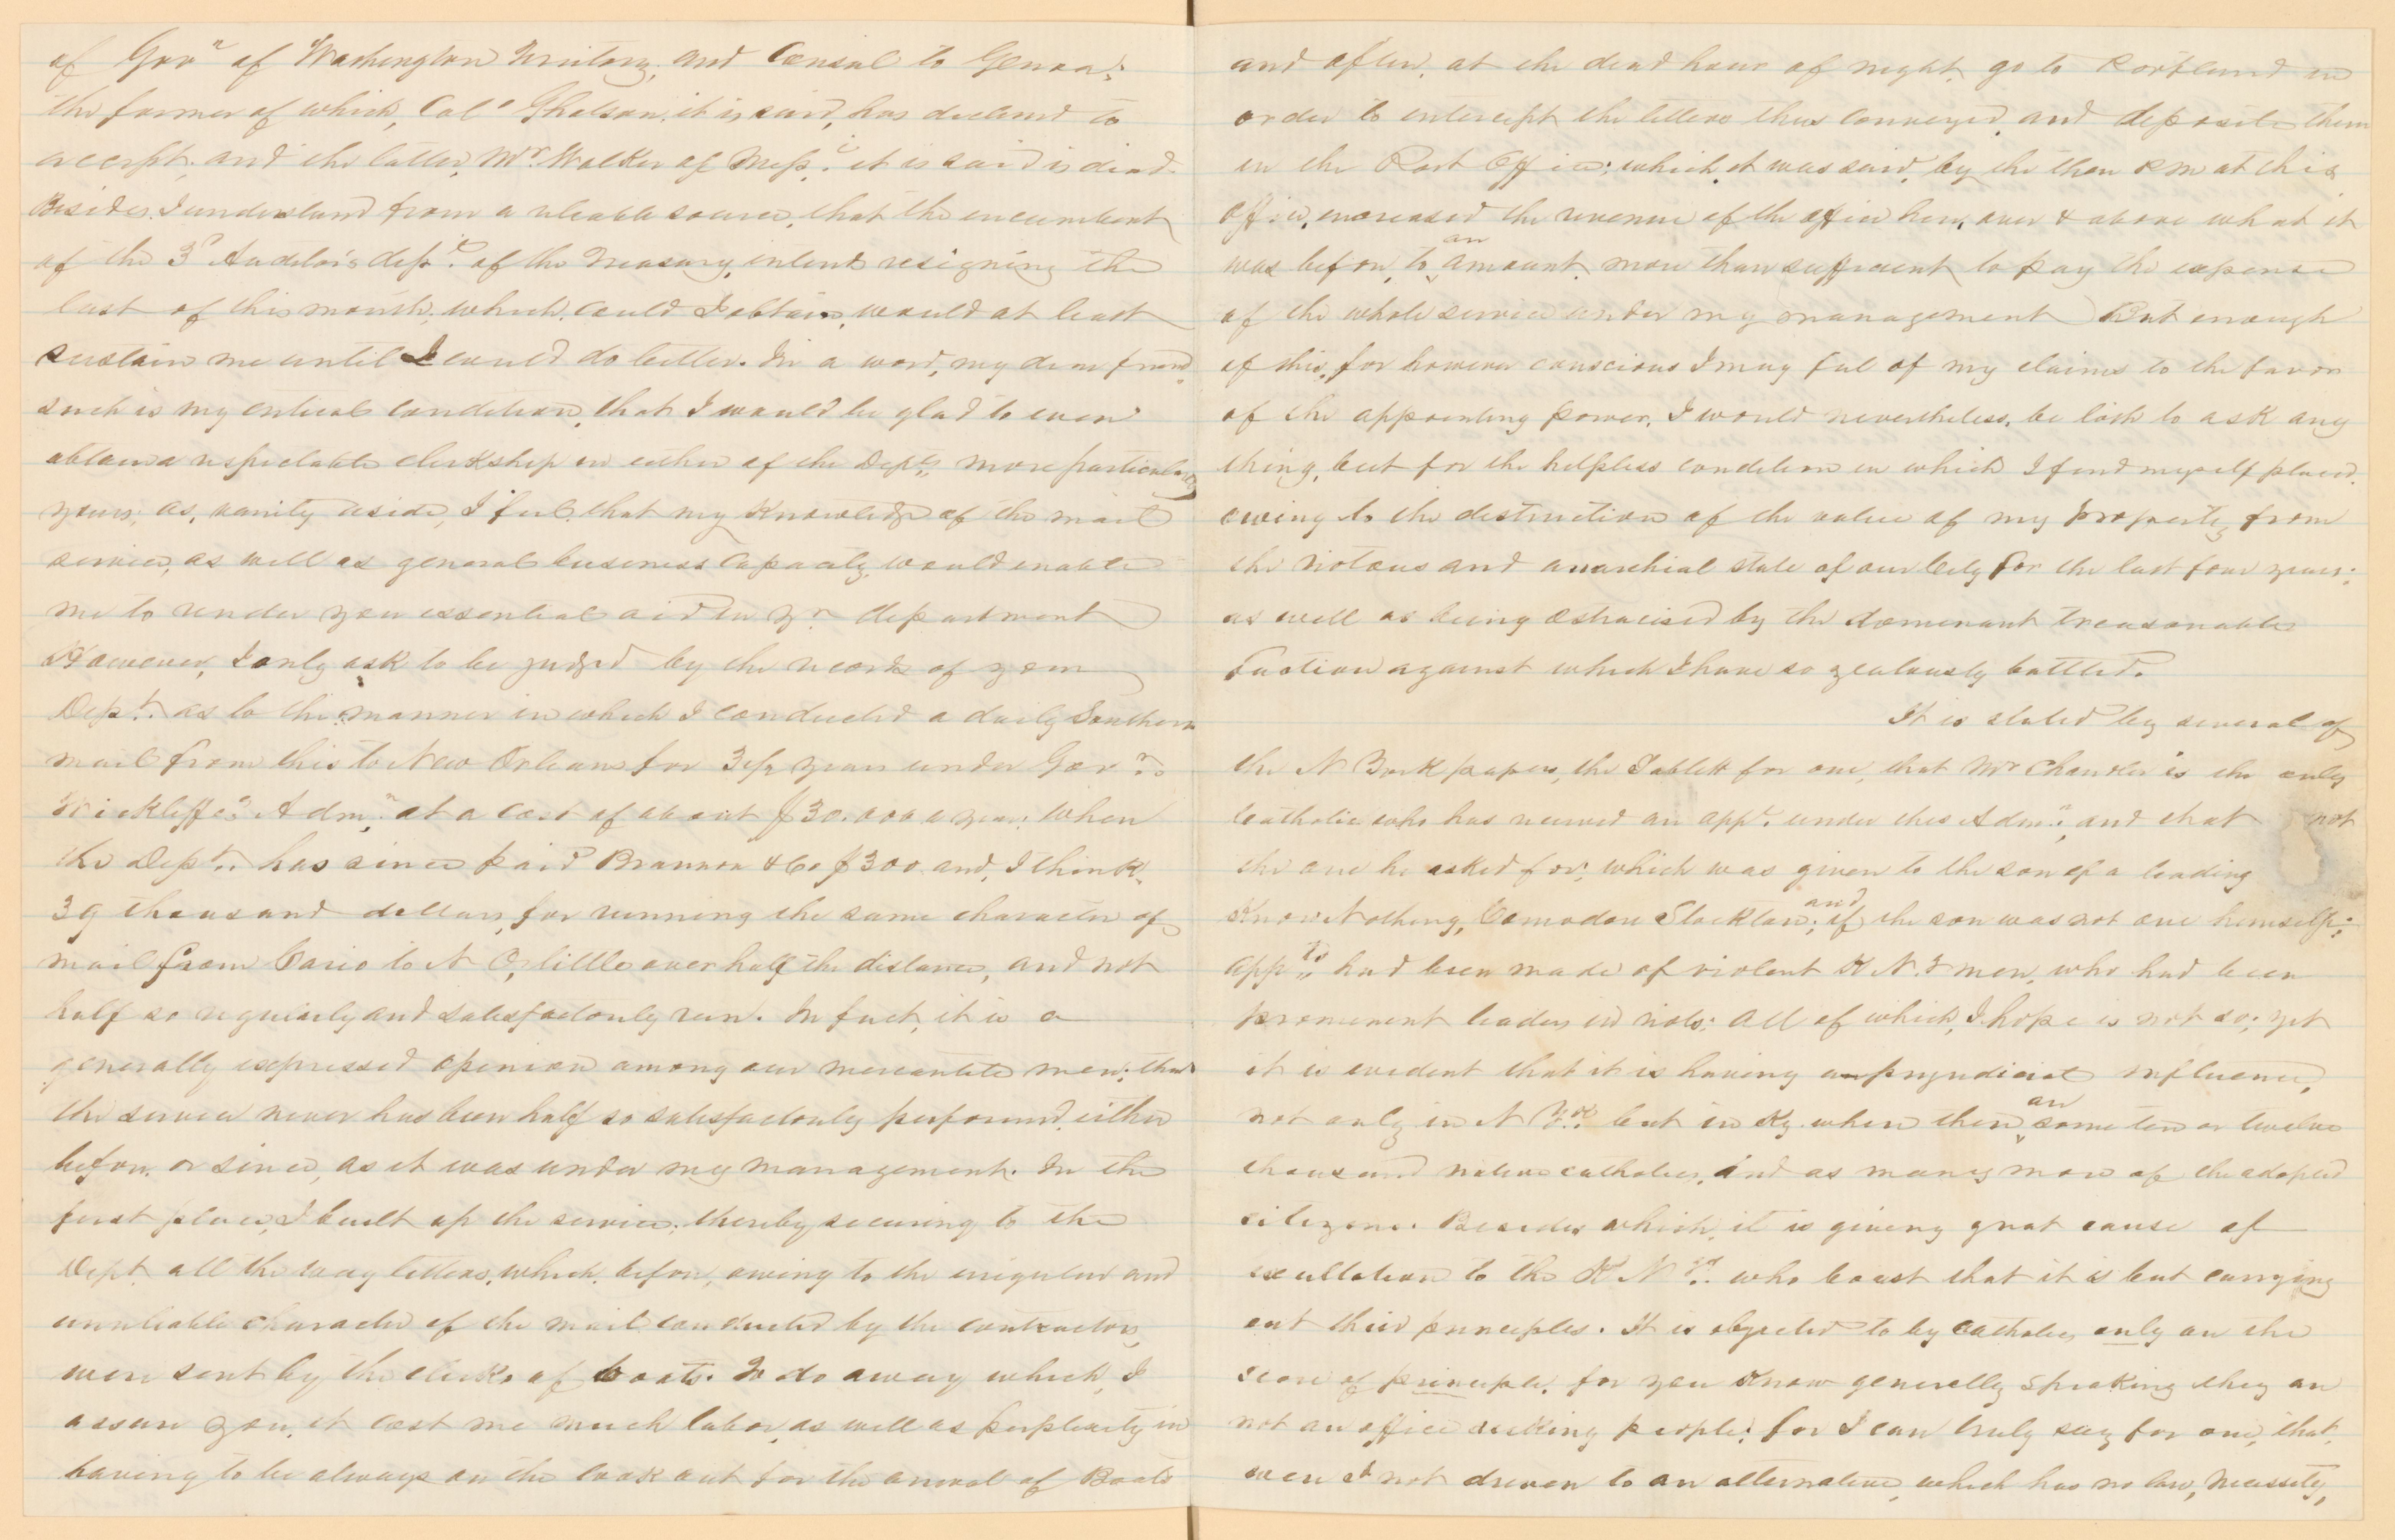 of Govr of Washington Territory, and Consul to Genoa;
the former of which, Col. Gholson, it is said, has declined to
accept, and the latter, Mr. Walker of Missi. it is said is dead.
Besides, I understand from a reliable source, that the incumbent
of the 3d Auditor's dept. of the Treasury, intends resigning the
last of this month, which, could I obtain, would at least
sustain me until I could do better. In a word, my dear friend,
such is my critical condition, that I would be glad to even
obtain a respectable clerkship in either of the Depts, more particularly
yours; as, vanity aside, I feel that my knowledge of the mail
service, as well as general business capacity, would enable
me to render you essential aid in yr department
However, I only ask to be judged by the records of your
Dept. as to the manner in which I conducted a daily Southern
mail from this to New Orleans for 3½ years under Govr.
Wickliffe's Admn. at a cost of about $30.000 a year; when
the Dept. has since paid Brannon & Co $300 and, I think,
39 thousand dollars, for running the same character of
mail from Cairo to N O, little over half the distance, and not
half so regularly and satisfactorily run. In fact, it is a
generally expressed opinion among our mercantile men; that
the service never has been half so satisfactorily performed, either
before, or since, as it was under my management. In the
first place, I built up the service; thereby securing to the
Dept. all the way letters, which, before, owing to the irregular and
unreliable character of the mail conducted by the contractors,
were sent by the clerks of boats. To do away which, I
assure you, it cost me much labor, as well as perplexity in
having to be always on the look out for the arrival of Boats
and often, at the dead hour of night, go to Portland in
order to intercept the letters thus conveyed, and deposite them
in the Post Office; which, it was said, by the then P M at this
Office, increased the revenue of the office here, over & above what it
was before, to an amount, more than sufficient to pay the expense
of the whole service under my management But enough
of this, for however conscious I may feel of my claims to the favor
of the appointing power, I would nevertheless, be loth to ask any
thing, but for the helpless condition in which I find myself placed,
owing to the destruction of the value of my property, from
the riotous and anarchial state of our City for the last four years;
as well as being ostracised by the dominant treasonable
faction against which I have so zealously battled.
It is stated by several of
the N York papers, the Tablet for one, that Mr Chandler is the only
Catholic who has received an appt. under this Admn., and that not
the one he asked for; which was given to the son of a leading
Know Nothing, Comodore Stockton; and if the son was not one himself;
appts had been made of violent K N. men, who had been
prominent leaders in riots; all of which, I hope is not so; yet
it is evident that it is having a prejudicial influence,
not only in N York but in Ky. where there are some ten or twelve
thousand native catholics, and as many more of the adopted
citizens. Besides which, it is giving great cause of
exultation to the K Ngs. who boast that it is but carrying
out their principles. It is objected to by Catholics only on the
score of principle, for you know generally speaking they are
not an office seeking people; for I can truly say for one, that,
were I not driven to an alternative, which has no law, necessity,